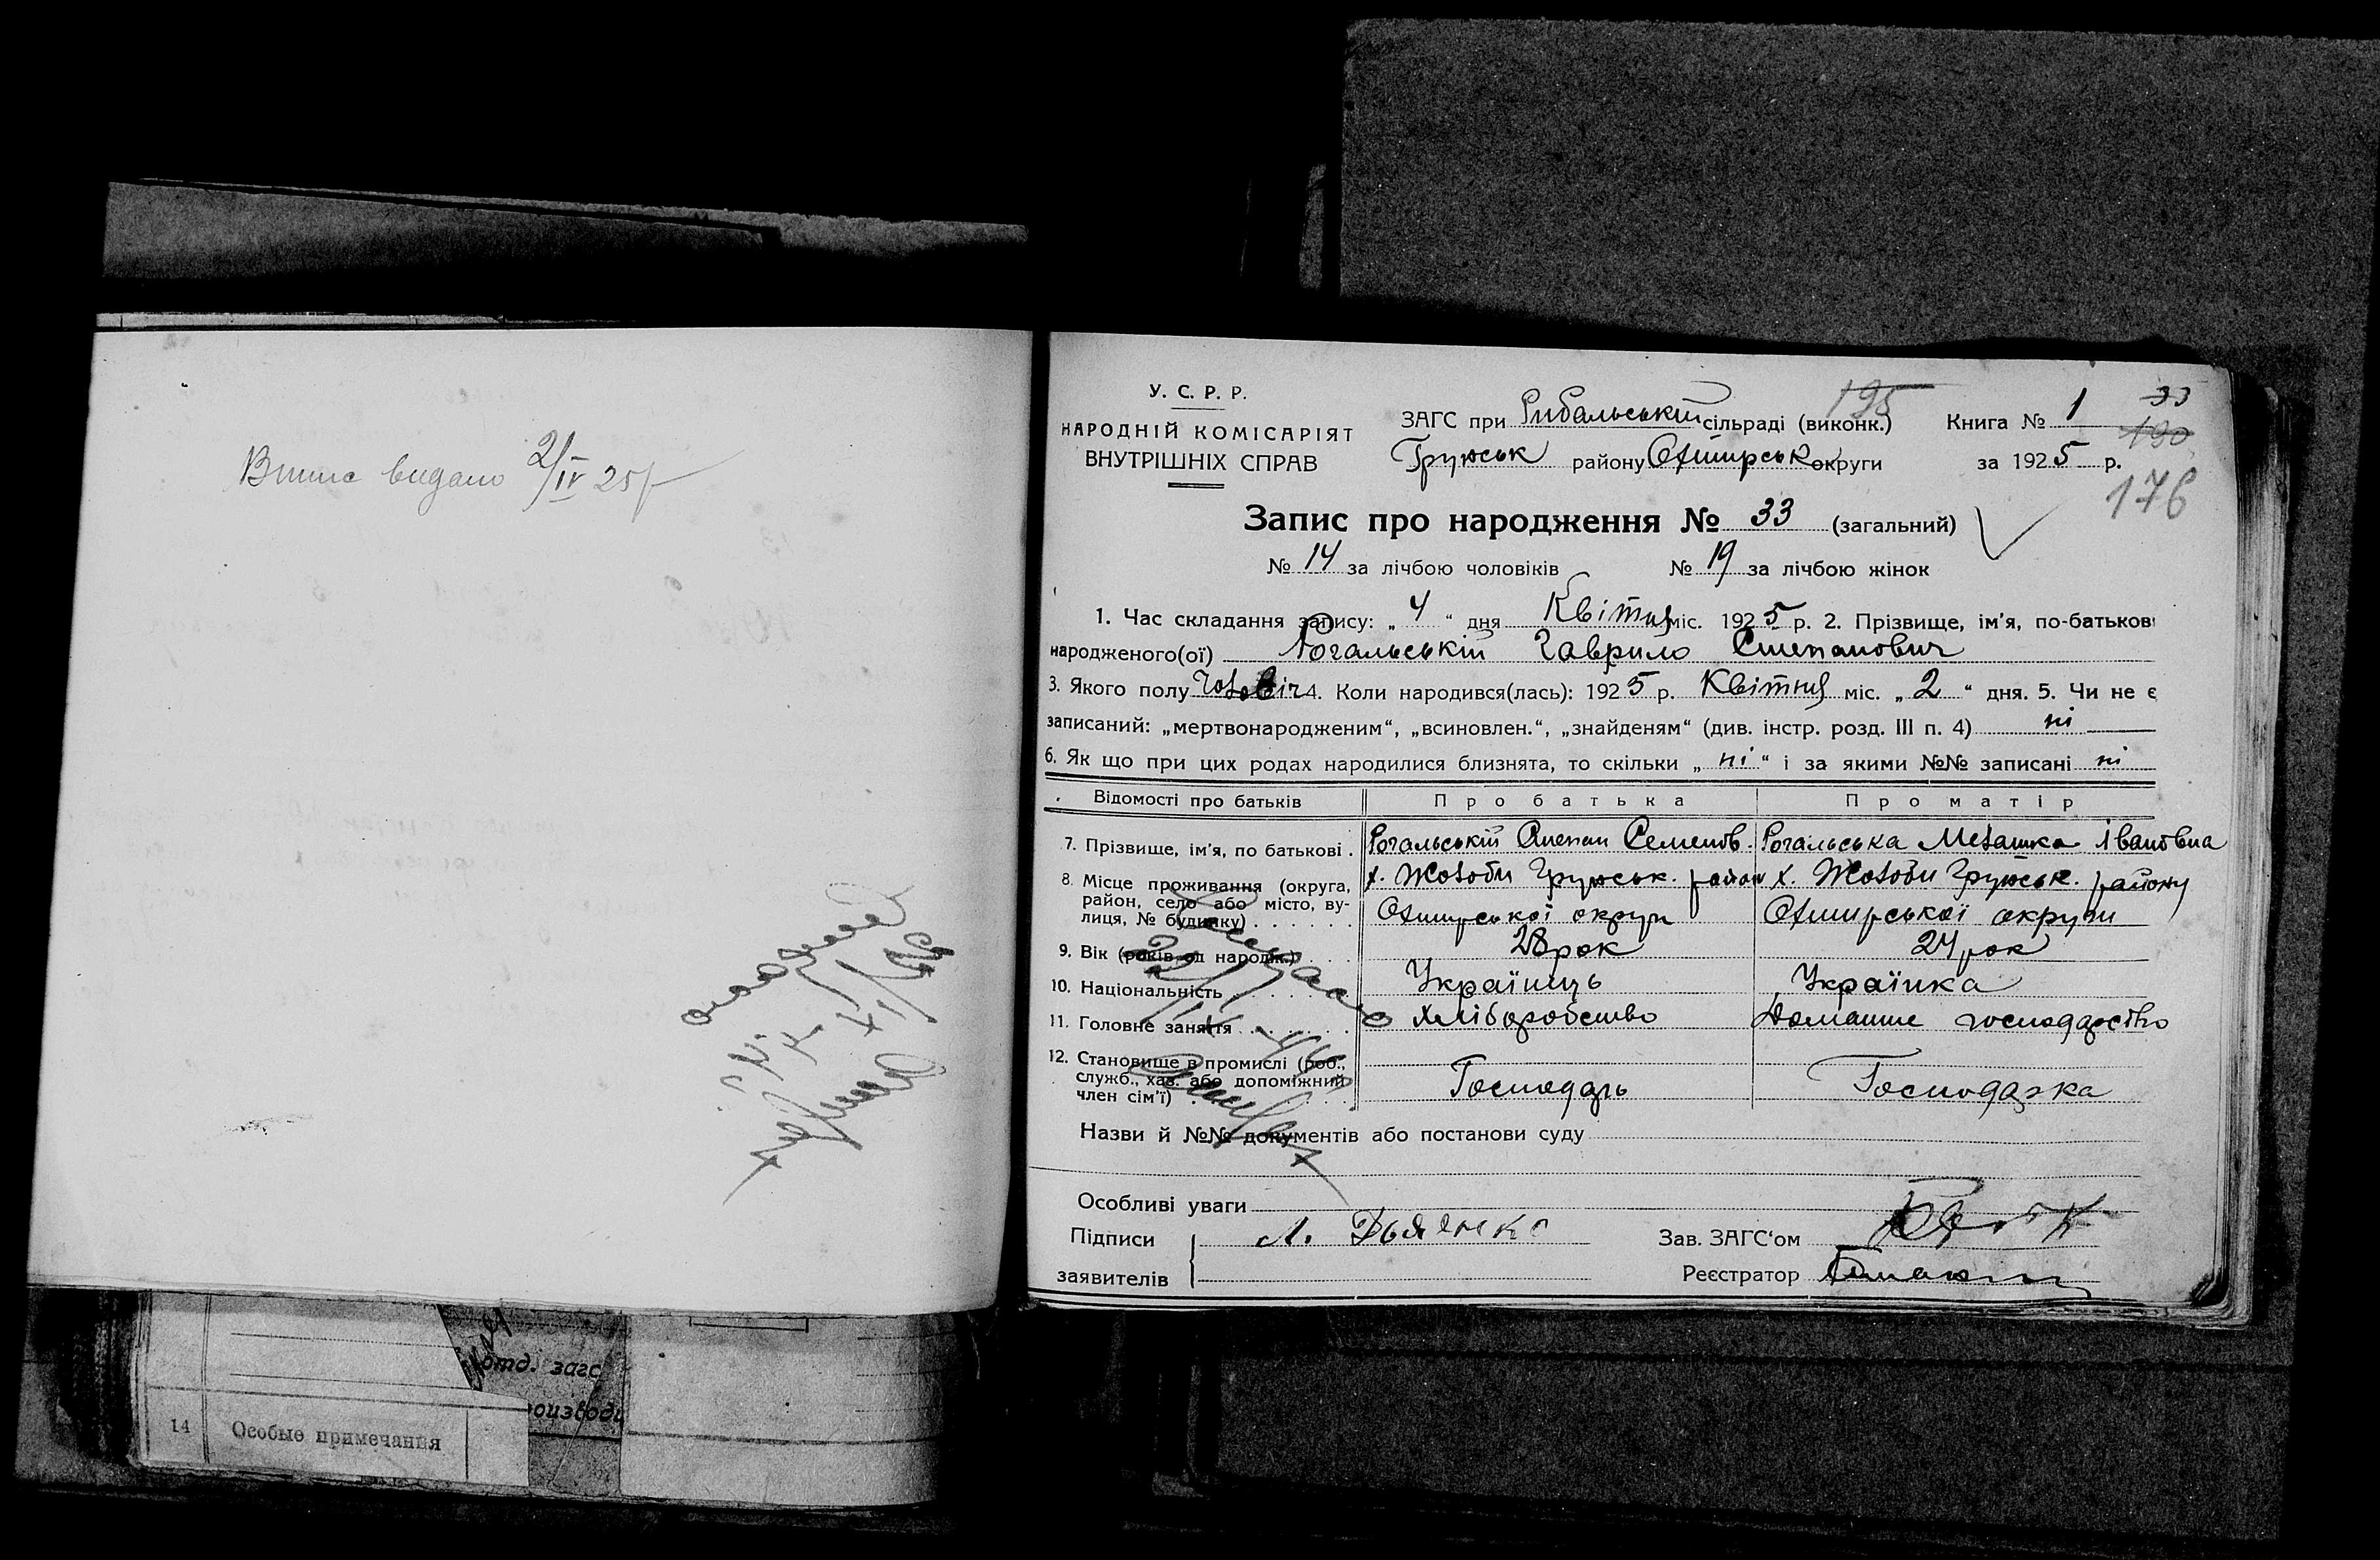 Витис видано 2/IV 25 р
У. С. Р. Р.
НАРОДНІЙ КОМІСАРІЯТ
ВНУТРІШНІХ СПРАВ
ЗАГС при Рибальській сільраді (виконк.)
195
Книга № 1
33
190
Грунськ району Охтирськ округи
за 1925 р.
176
Запис про народження № 33 (загальний)
№ 14 за лічбою чоловіків № 19 за лічбою жінок
1. Час складання запису: „ 4 “ дня Квітня міс. 1925 р. 2. Прізвище, ім'я, по-батькові
народженого(ої) Рогальській Гаврило Степанович
3. Якого полу Чоловіч 4. Коли народився(лась): 1925 р. Квітня міс. „ 2 “ дня. 5. Чи не є
записаний: „мертвонародженим“, „всиновлен.“, „знайденям“ (див. інстр. розд. III п. 4) ні
6. Як що при цих родах народилися близнята, то скільки „ ні “ і за якими №№ записані ні
Відомості про батьків Про батька Про матір
7. Прізвище, ім'я, по батькові . Рогальській Степан Семенов. Рогальська Мелашка Івановна
8. Місце проживання (округа, район, село або місто, вулиця, № будинку) х. Жолоби Грунськ. район х. Жолоби Грунськ. району
Охтирської округи Охтирської округи
9. Вік (років од народж.) 28 рок 24 рок
10. Національність Українець Українка
11. Головне заняття Хліборобство Домашнє господарство
12. Становище в промислі (роб.,
служб., хаз. або допоміжний
член сім'ї) Господарь Господарка
Назви й №№ документів або постанови суду
Особливі уваги
Підписи Л. Дьяенко Зав. ЗАГС‘ом
заявителів Реєстратор
отд. загс
14 Особые примечания